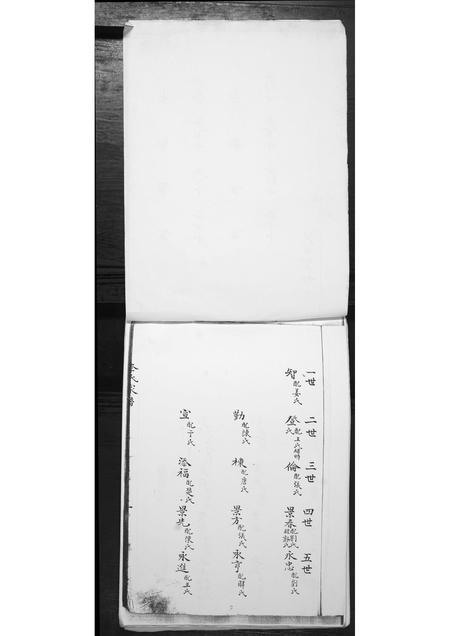 一世 二世 三世 四世 五世
智配姜氏 登配王氏 倫配張氏 景春配劉氏 永忠配劉氏
勤配陳氏 棟配唐氏 景方配張氏 永亨配解氏
宣配于氏 添福配楚氏 景先配陳氏 永進配王氏
氏家譜